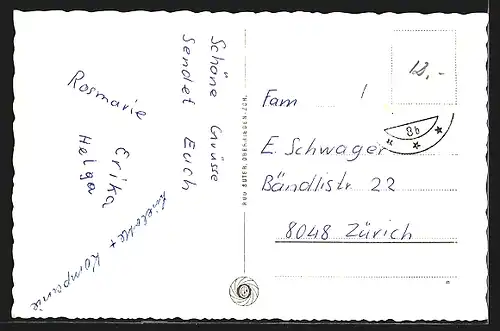 Schöne Grüsse
Sendet Euch
Rosmarie
Erika
Helga
+ Kompanie
Fam
E. Schwager
Bändlistr. 22
8048 Zürich
12,-
8b
RUD. SUTER, OBERRIEDEN-ZCH.